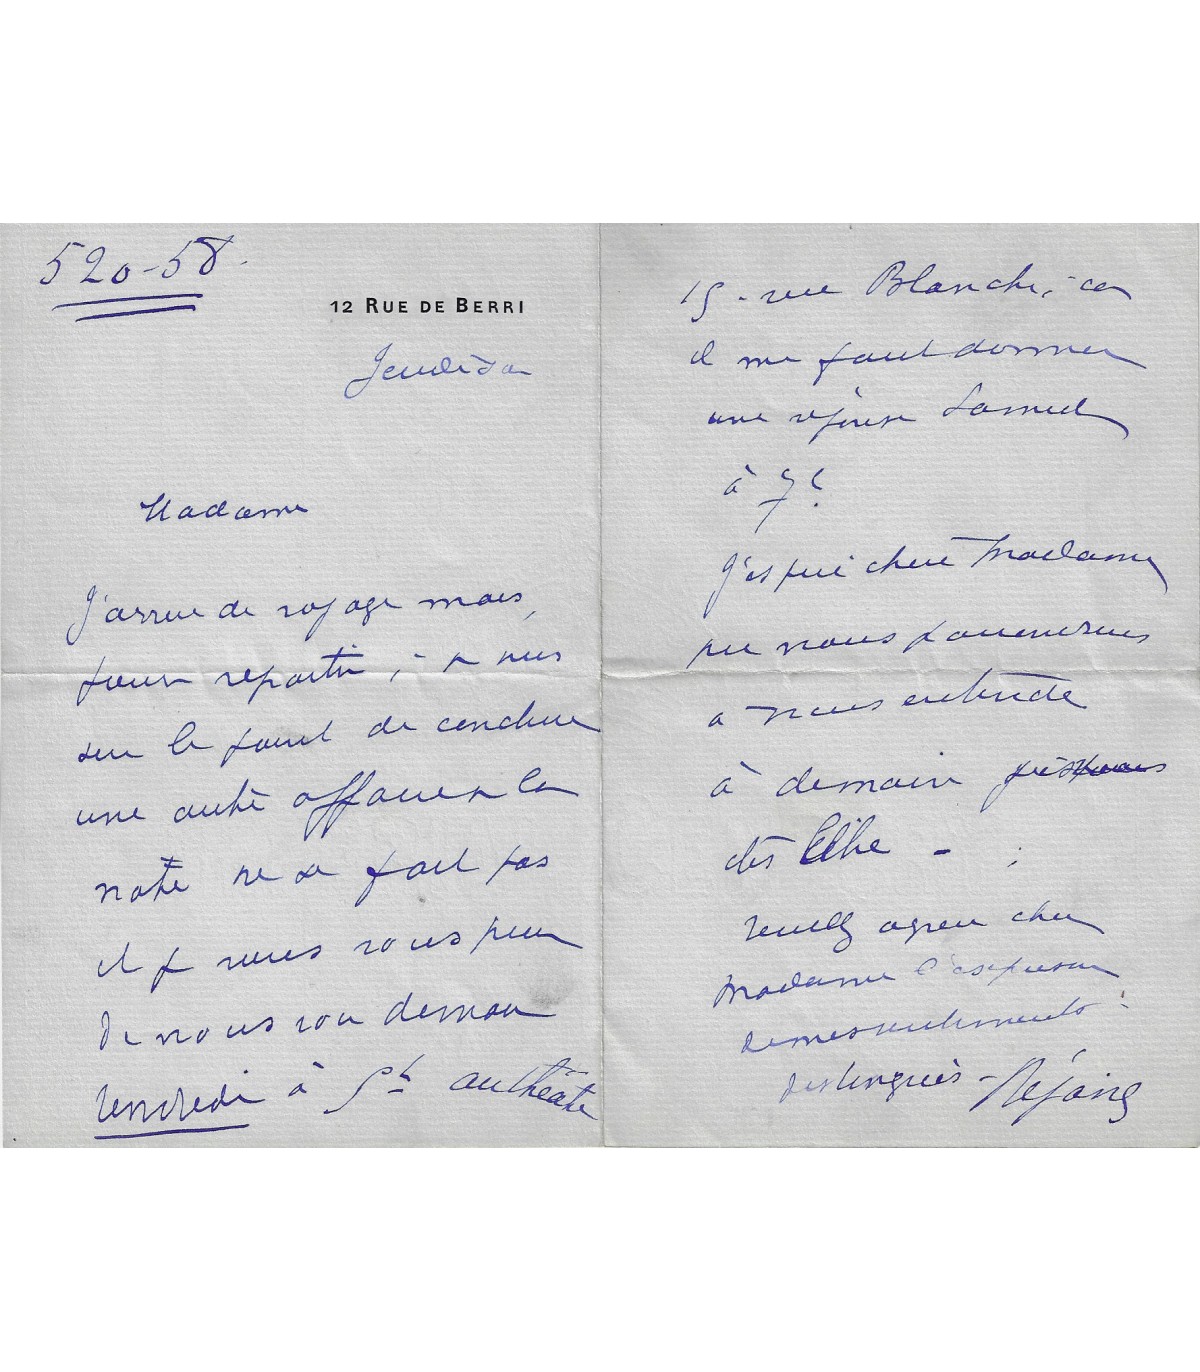 520-58.
12 RUE DE BERRI
Jeudi soir
Madame
J'arrive de voyage mais,
pour repartir, - je suis
sur le point de conclure
une autre affaire si la
notre ne se fait pas
il y
de nous voir demain
vendredi à 5h au théâtre
15 - rue Blanche, - car
il me faut donner
une réponse Samedi
à 7h
J'espère chère Madame
que nous parviendrons
a nous entendre
à demain
Veuillez agréer chère
Madame l'expression
de mes sentiments -
distingués - Réjane